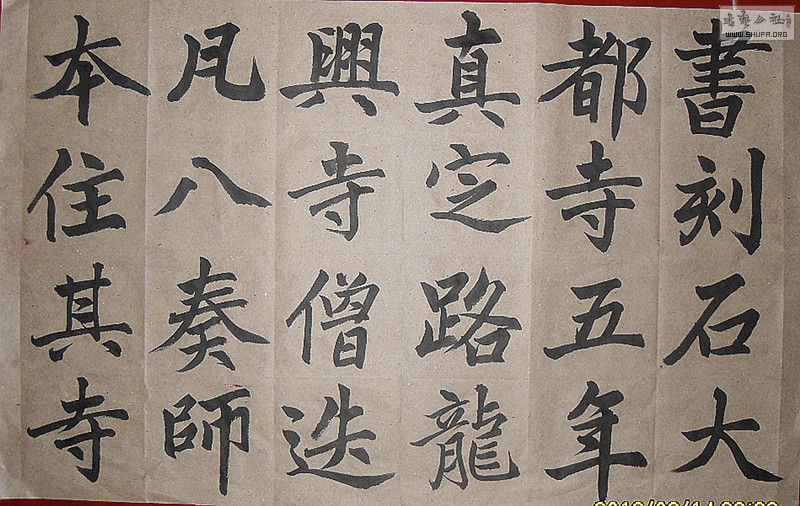 書刻石大
都寺五年
真定路龍
興寺僧迭
凡八奏師
本住其寺
书艺公社
WWW.SHUFA.ORG